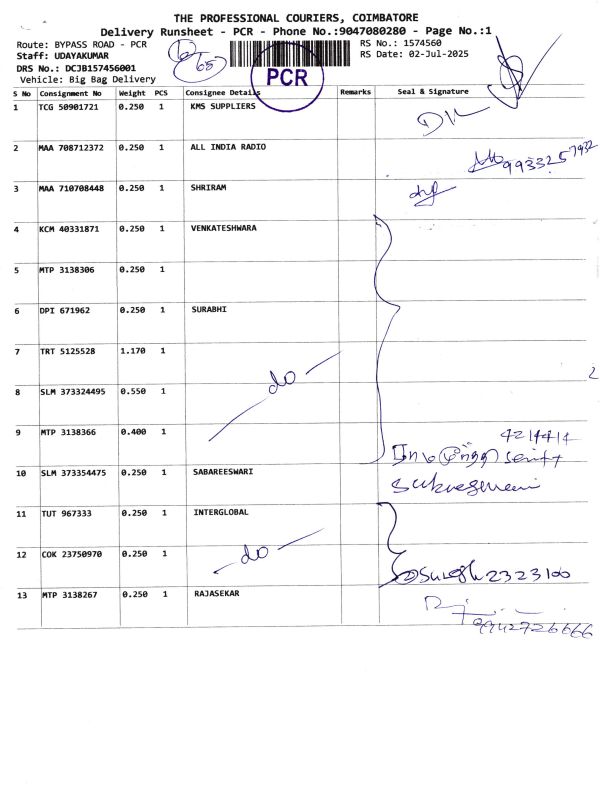 THE PROFESSIONAL COURIERS, COIMBATORE
Delivery Runsheet - PCR - Phone No.:9047080280 - Page No.:1
Route: BYPASS ROAD - PCR
Staff: UDAYAKUMAR
DRS No.: DCJB157456001
Vehicle: Big Bag Delivery
65
PCR
RS No.: 1574560
RS Date: 02-Jul-2025
S No Consignment No Weight PCS Consignee Details Remarks Seal & Signature
1 TCG 50901721 0.250 1 KMS SUPPLIERS
2 MAA 708712372 0.250 1 ALL INDIA RADIO
9933257932
3 MAA 710708448 0.250 1 SHRIRAM
4 KCM 40331871 0.250 1 VENKATESHWARA
5 MTP 3138306 0.250 1
6 DPI 671962 0.250 1 SURABHI
7 TRT 5125528 1.170 1
do
8 SLM 373324495 0.550 1
2
9 MTP 3138366 0.400 1
4214414
10 SLM 373354475 0.250 1 SABAREESWARI
11 TUT 967333 0.250 1 INTERGLOBAL
12 COK 23750970 0.250 1
do
Suresh 2323100
13 MTP 3138267 0.250 1 RAJASEKAR
9942726666